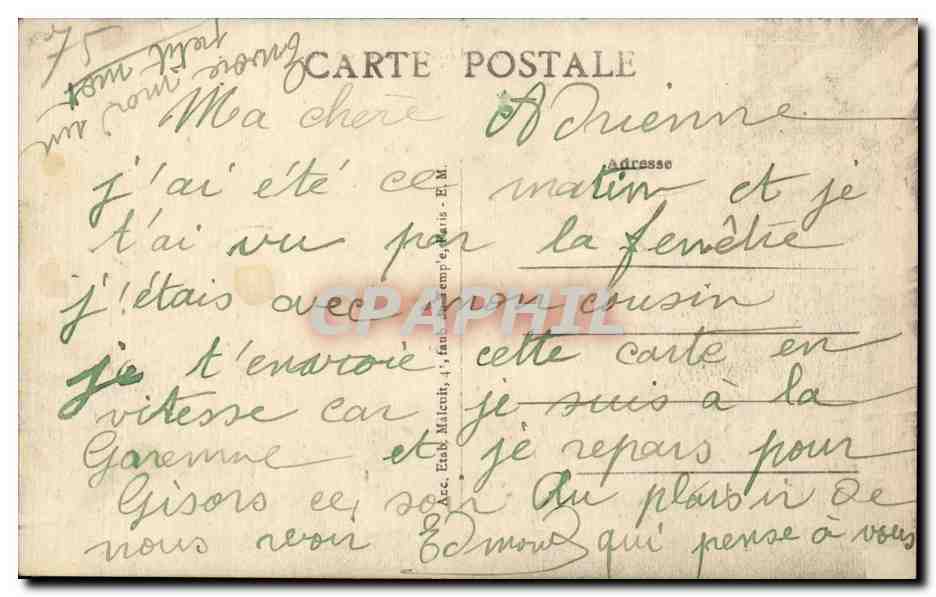 75
Envoie
moi un
petit mot
CARTE POSTALE
Ma chère Adrienne
Adresse
j'ai été ce matin et je
t'ai vu par la fenêtre
j'étais avec mon cousin
je t'envoie cette carte en
vitesse car je suis à la
Garenne et je repars pour
Gisors ce soir Au plaisir de
nous revoir Edmond qui pense à vous
Anc. Etab. Malcuit, 41, faub. du Temple, Paris - E. M.
CPAPHIL